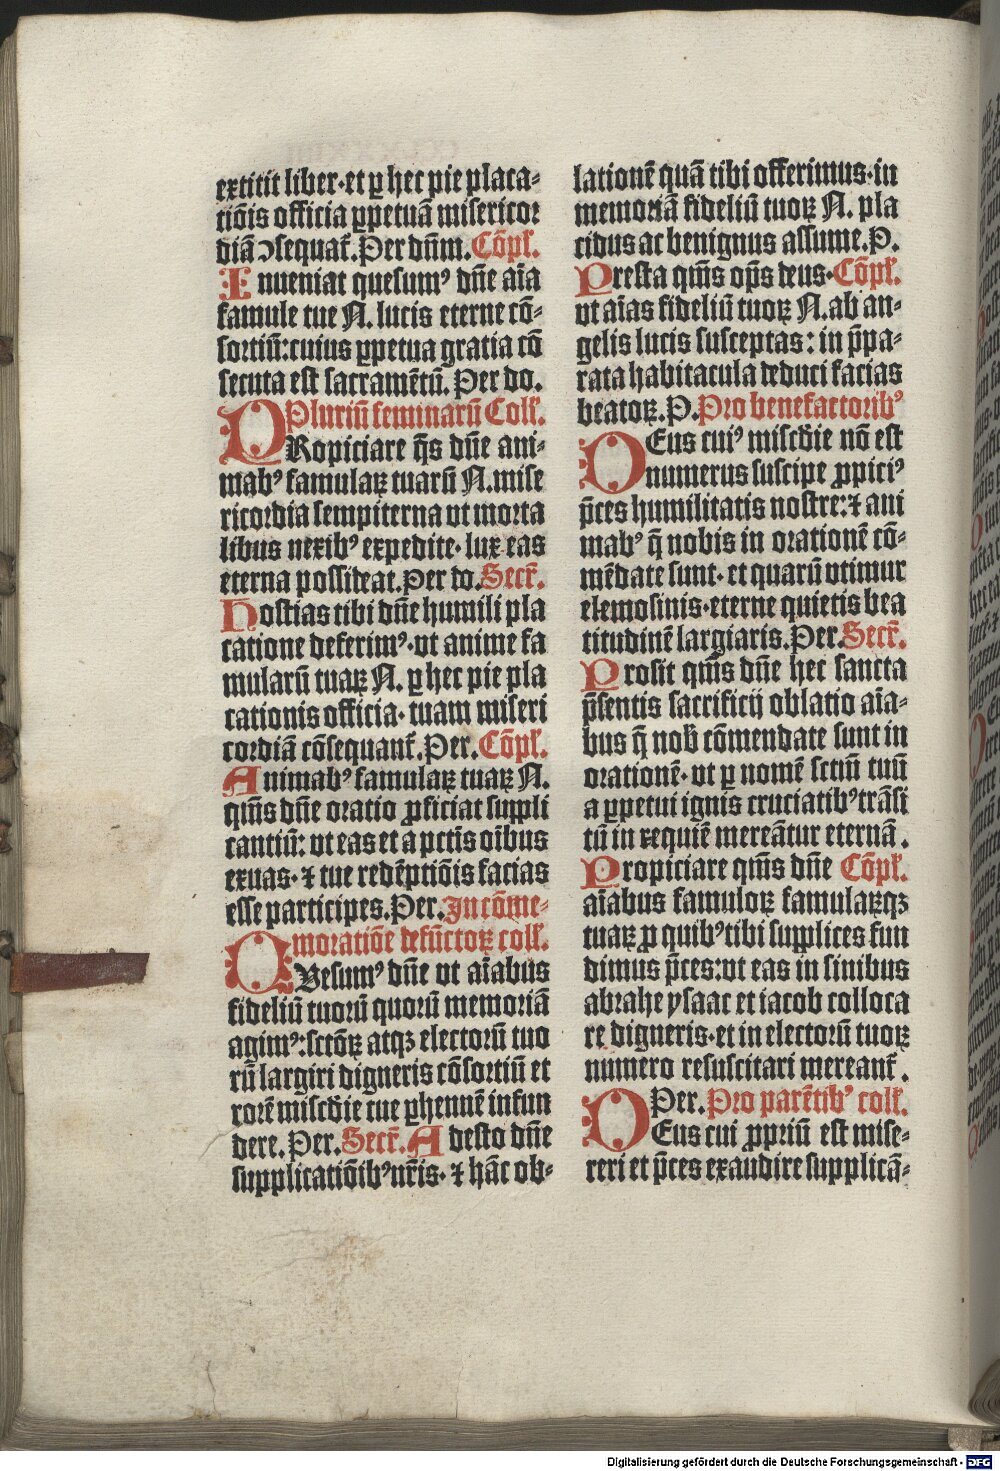 extitit liber·et ꝑ hec pie placa-
tiōis officia ꝑpetuā misericor
diā ↄsequat᷑. Per dn̄m. Cōpl᷑.
Inueniat quesumꝰ dn̄e aīa
famule tue N. lucis eterne cō-
sortiū: cuius ꝑpetua gratia cō
secuta est sacramētū. Per do.
Pluriū feminarū Coll᷑.
PRopiciare q̄s dn̄e ani-
mabꝰ famulaꝝ tuarū N. mise
ricordia sempiterna vt morta
libus nexibꝰ expedite· lux eas
eterna possideat. Per do. Secr᷑.
Hostias tibi dn̄e humili pla
catione deferimꝰ· vt anime fa
mularū tuaꝝ N. ꝑ hec pie pla
cationis officia· tuam miseri
cordiā cōsequant᷑. Per. Cōpl᷑.
Animabꝰ famulaꝝ tuaꝝ N.
qm̄s dn̄e oratio ꝓficiat suppli
cantiū: vt eas et a pctīs oībus
exuas· ⁊ tue redēptiōis facias
esse participes. Per. In cōme-
moratiōe defūctoꝝ coll᷑.
QVesumꝰ dn̄e vt aīabus
fideliū tuorū quorū memoriā
agimꝰ: sctōꝝ atqꝫ electorū tuo
rū largiri digneris cōsortiū et
rorē miscd̄ie tue ꝑhennē infun
dere. Per. Secr᷑. Adesto dn̄e
supplicatiōibꝰ nr̄is· ⁊ hāc ob-
lationē quā tibi offerimus· in
memoriā fideliū tuoꝝ N. pla
cidus ac benignus assume. P.
Presta qm̄s op̄s deus· Cōpl᷑.
vt aīas fideliū tuoꝝ N. ab an-
gelis lucis susceptas: in p̄pa-
rata habitacula deduci facias
beatoꝝ. P. Pro benefactoribꝰ
DEus cuiꝰ miscd̄ie nō est
numerus suscipe ꝓpiciꝰ
p̄ces humilitatis nostre: ⁊ ani
mabꝰ q̄ nobis in orationē cō-
mēdate sunt· et quarū vtimur
elemosinis· eterne quietis bea
titudinē largiaris. Per. Secr᷑.
Prosit qm̄s dn̄e hec sancta
p̄sentis sacrificij oblatio aīa-
bus q̄ nob̄ cōmendate sunt in
orationē· vt ꝑ nomē sctm̄ tuū
a ꝑpetui ignis cruciatibꝰ trāsi
tū in requiē mereātur eternā.
Propiciare qm̄s dn̄e Cōpl᷑.
aīabus famuloꝝ famulaꝝqꝫ
tuaꝝ ꝓ quibꝰ tibi supplices fun
dimus p̄ces: vt eas in sinibus
abrahe ysaac et iacob colloca
re digneris· et in electorū tuoꝝ
numero resuscitari mereant᷑.
Per. Pro parētibꝰ coll᷑.
DEus cui ꝓpriū est mise-
reri et p̄ces exaudire supplicā-
Digitalisierung gefördert durch die Deutsche Forschungsgemeinschaft - DFG